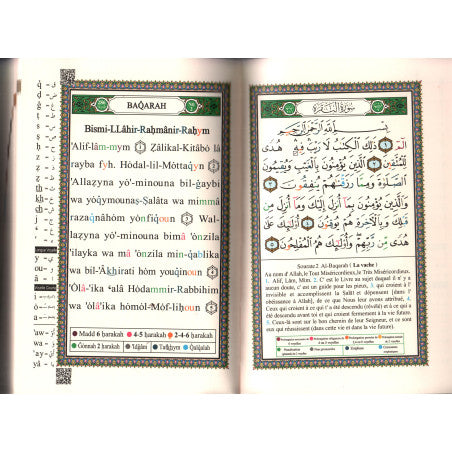 BAQARAH
Bismi-LLâhir-Raḥmânir-Raḥym
'Alif-lâm-mym ① Ẑâlikal-Kitâbô lâ
rayba fyh. Hôdal-lil-Môttaqyn ②
'Allaẑyna yô'-minouna bil-ğaybi
wa yôqymounaṣ-Ṣalâta wa mimmâ
razaqnâhom yonfiqoun ③ Wal-
laẑyna yô'-minouna bimâ 'onzila
'ilayka wa mâ 'onzila min-qablika
wa bil-'Âḵirati hom youqinoun ④
'Olâ-'ika ʿalâ Hôdammir-Rabbihim
wa 'olâ'ika hômôl-Môf-liḥoun ⑤
Madd 6 ḥarakah
4-5 ḥarakah
2-4-6 ḥarakah
Ğonnah 2 ḥarakah
'Idğâm
Tafḵym
Qalqalah
سورة البقرة
بسم الله الرحمن الرحيم
الم ١ ذلك الكتاب لا ريب فيه هدى
للمتقين ٢ الذين يؤمنون بالغيب ويقيمون
الصلوة ومما رزقنهم ينفقون ٣ والذين
يؤمنون بما أنزل إليك وما أنزل من
قبلك وبالآخرة هم يوقنون ٤ أولئك على
هدى من ربهم وأولئك هم المفلحون ٥
Sourate 2 Al-Baqarah ( La vache )
Au nom d'Allah, le Tout Miséricordieux, le Très Miséricordieux.
1. Alif, Lâm, Mîm. 2. C'est le Livre au sujet duquel il n'y a
aucun doute, c'est un guide pour les pieux, 3. qui croient à
l'invisible et accomplissent la Salât et dépensent (dans
l'obéissance à Allah), de ce que Nous leur avons attribué, 4.
Ceux qui croient à ce qui t'a été descendu et à ce qui a été
descendu avant toi et qui croient fermement à la vie future.
5. Ceux-là sont sur le bon chemin de leur Seigneur, et ce sont
eux qui réussissent (dans cette vie et dans la vie future).